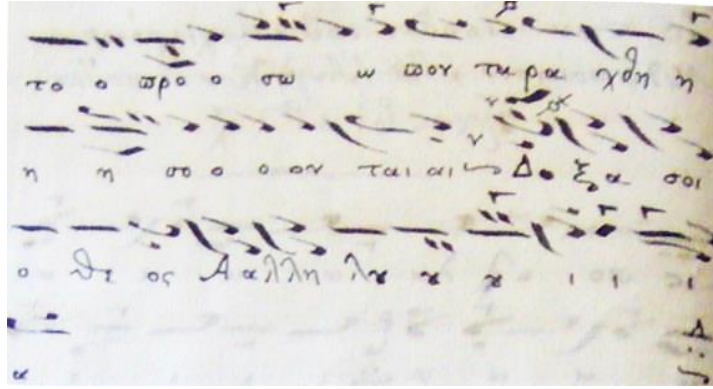 το ο προ ο σω ω πον τα ρα χθη η
η η σο ο ο ον ται αι Δο ξα σοι
ο θε ος Α αλλη λȣ ȣ ȣ ι ι ι
α